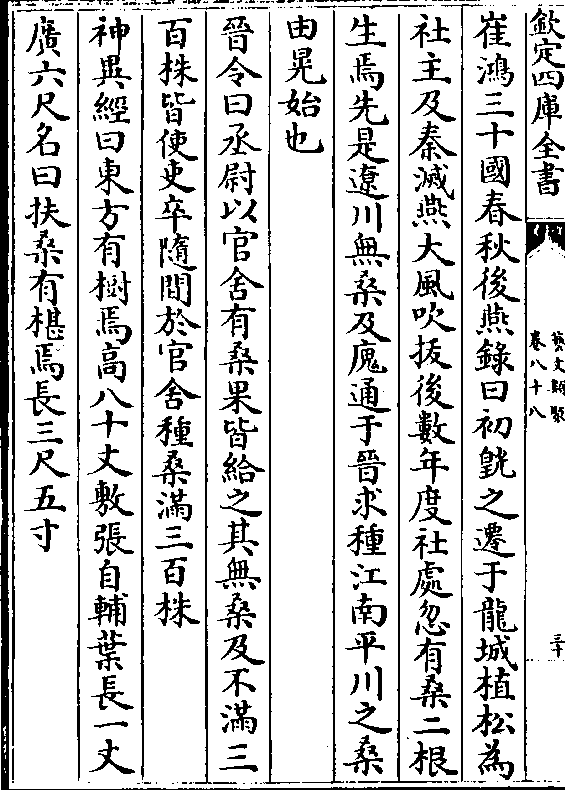 欽定四庫全書
藝文類聚
卷八十八
三十
崔鴻三十國春秋後燕錄曰初皝之遷于龍城植松為
社主及秦滅燕大風吹拔後數年度社處忽有桑二根
生焉先是遼川無桑及廆通于晉求種江南平川之桑
由晃始也
晉令曰丞尉以官舍有桑果皆給之其無桑及不滿三
百株皆使吏卒隨間於官舍種桑滿三百株
神異經曰東方有樹焉高八十丈敷張自輔葉長一丈
廣六尺名曰扶桑有椹焉長三尺五寸